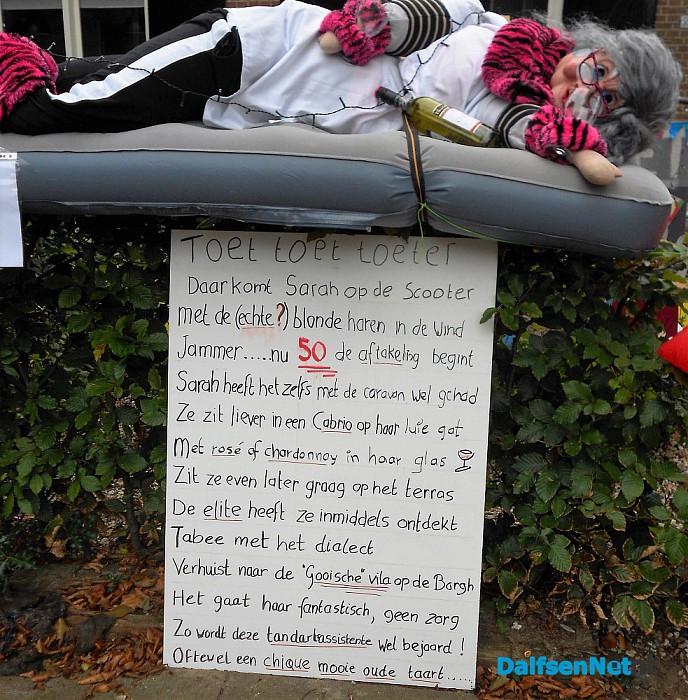 Toet toet toeter
Daar komt Sarah op de Scooter
met de (echte?) blonde haren in de wind
Jammer.....nu 50 de aftakeling begint
Sarah heeft het zelfs met de caravan wel gehad
Ze zit liever in een Cabrio op haar luie gat
Met rosé of chardonnay in haar glas
Zit ze even later graag op het terras
De elite heeft ze inmiddels ontdekt
Tabee met het dialect
Verhuist naar de "Gooische" vila op de Bargh
Het gaat haar fantastisch, geen zorg
Zo wordt deze tandartsassistente wel bejaard !
Oftewel een chique mooie oude taart.....
DalfsenNet